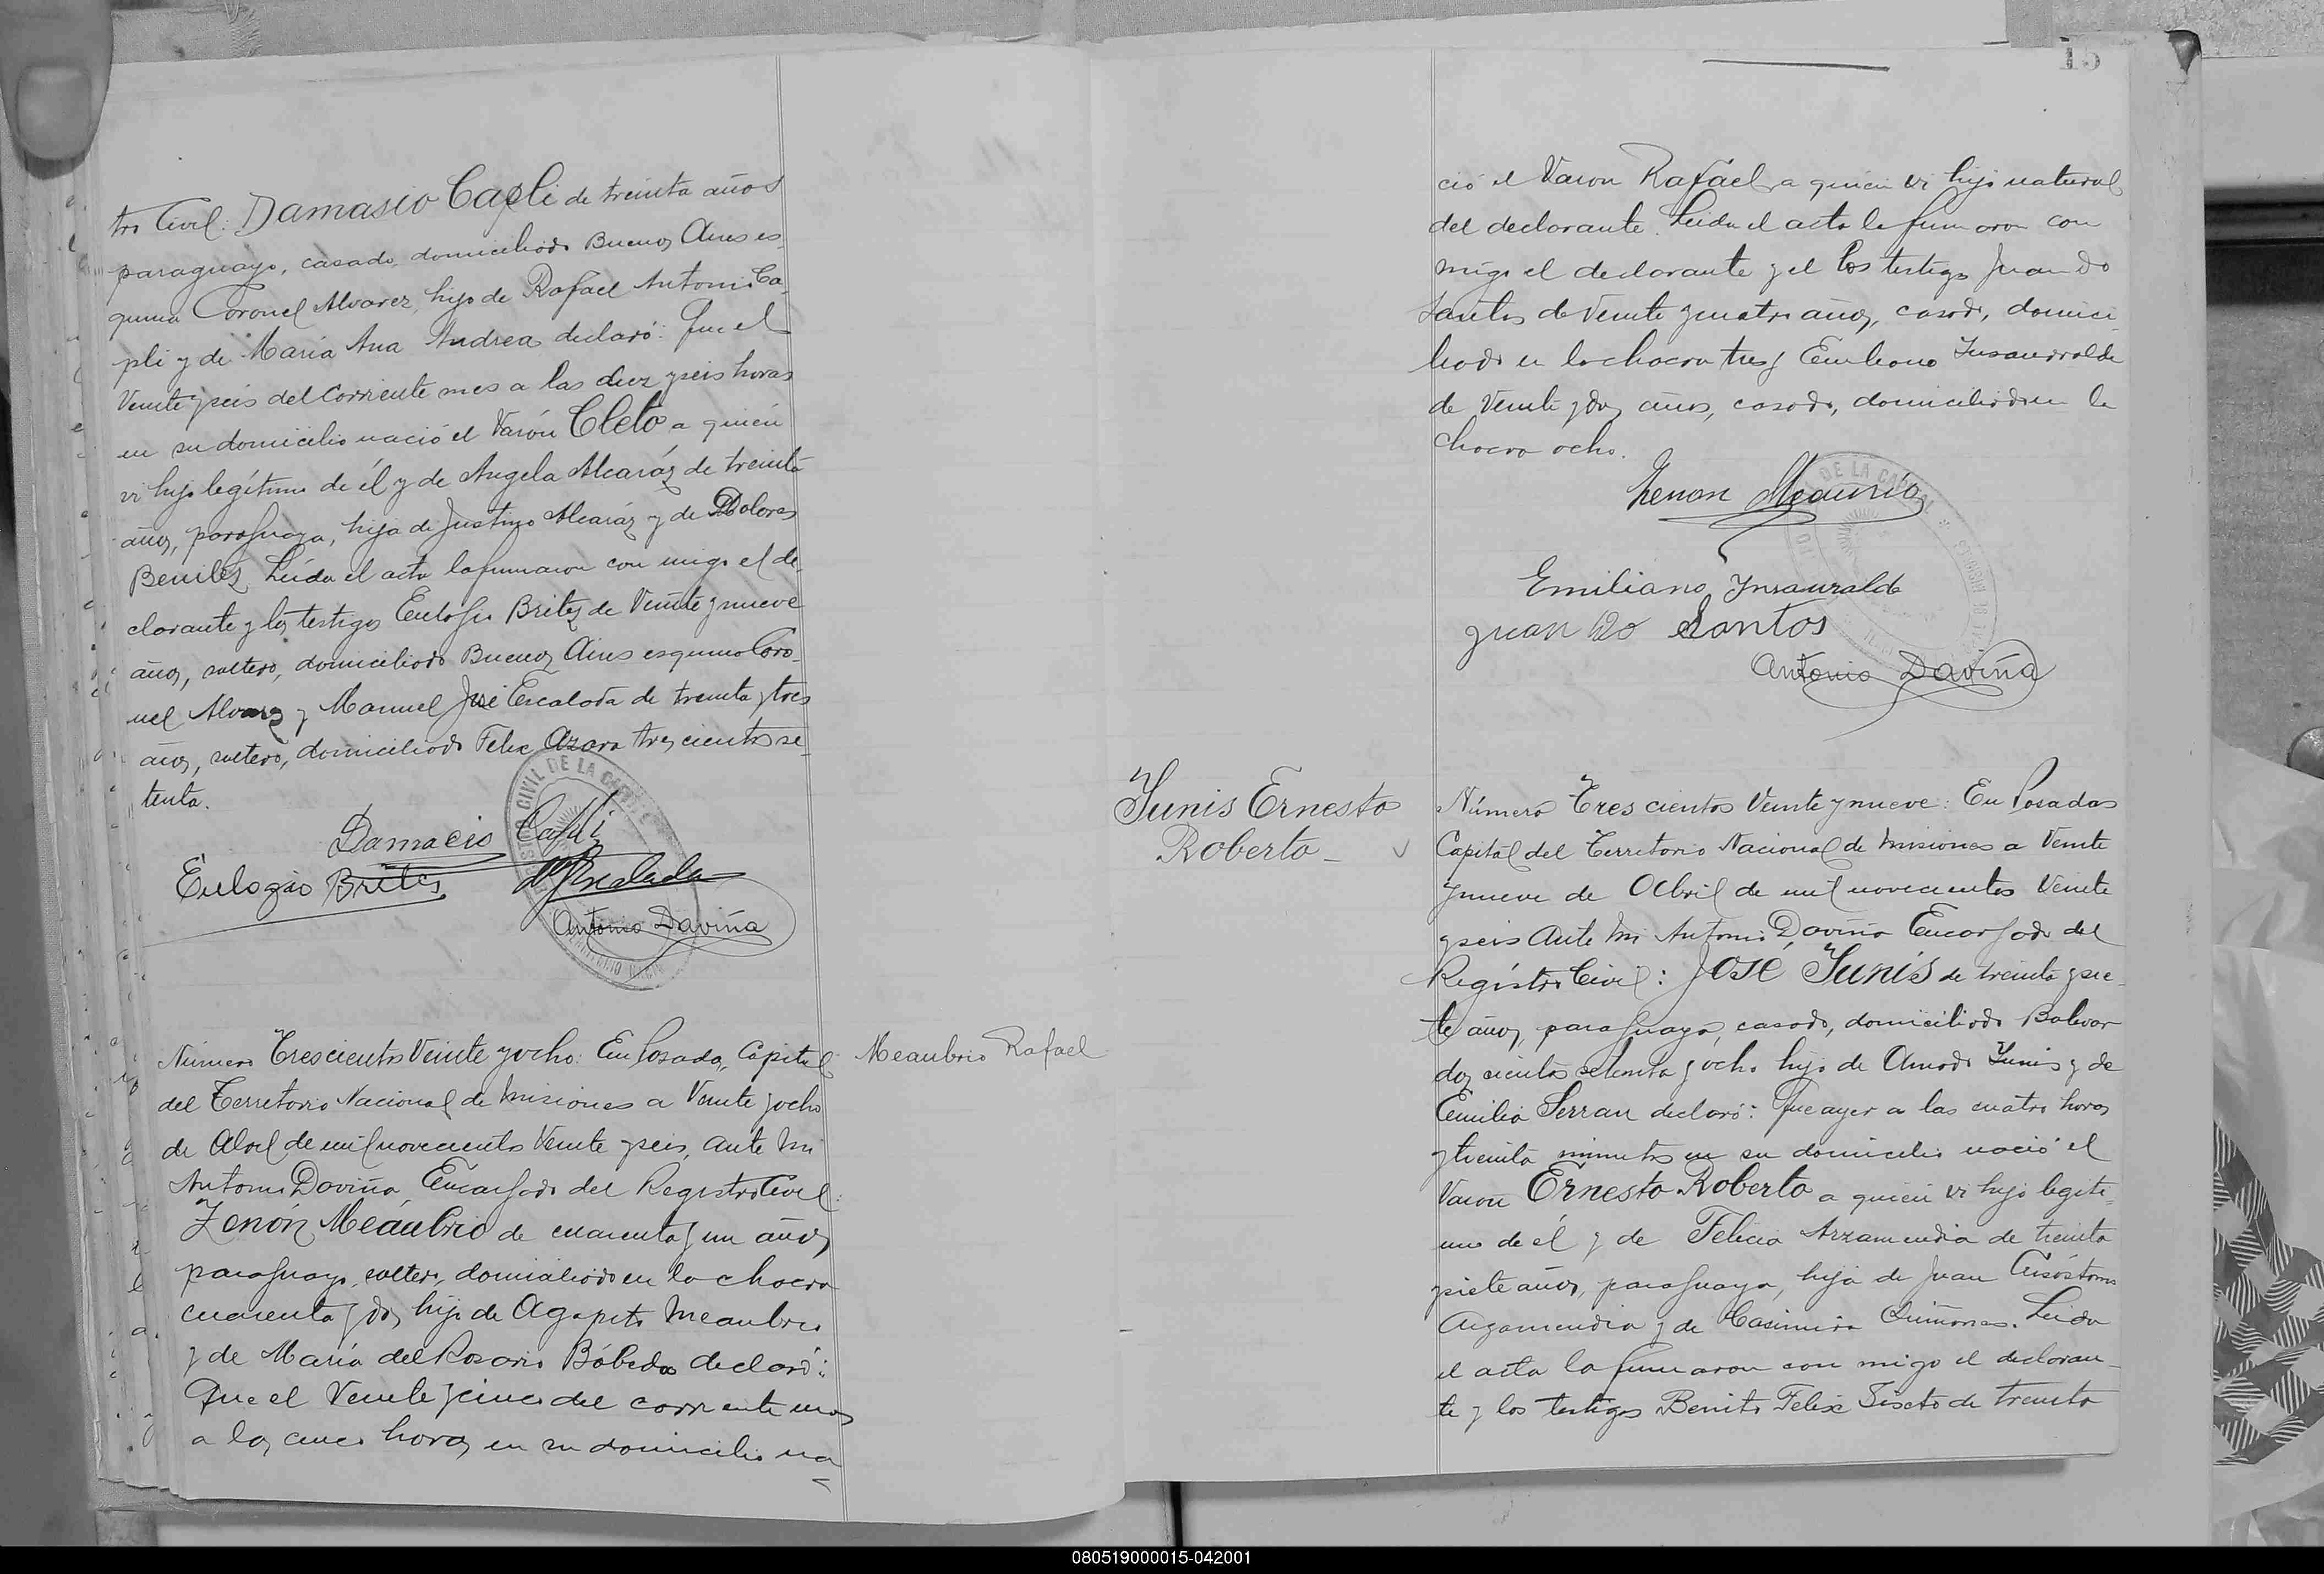 tro Civil: Damasio Capli de treinta años
paraguayo, casado, domiciliado Buenos Aires es-
quina Coronel Alvarez, hijo de Rafael Antonio Ca-
pli y de María Ana Andrea declaró: Que el
Veinte y seis del corriente mes a las diez y seis horas
en su domicilio nació el Varón Cleto a quien
vi hijo legítimo de él y de Angela Alcaráz de treinta
años, paraguaya, hija de Justino Alcaráz y de Dolores
Benitez. Leída el acta la firmaron con migo el de-
clarante y los testigos Eulogio Britez de Veinte y nueve
años, soltero, domiciliado Buenos Aires esquina Coro-
nel Alvarez y Manuel José Escalada de treinta y tres
años, soltero, domiciliado Felix Azara trescientos se-
tenta.
Damacio Capli
Eulogio Brites
Antonio Daviña
REGISTRO CIVIL DE LA CAPITAL
Número Trescientos Veinte y ocho: En Posadas, Capital
Meaubrio Rafael
del Territorio Nacional de Misiones a Veinte y ocho
de Abril de mil novecientos Veinte y seis, ante mi
Antonio Daviña, Encargado del Registro Civil:
Zenón Meáubrio de cuarenta y un años,
paraguayo, soltero, domiciliado en la chacra
cuarenta y dos, hijo de Agapito Meaubrio
y de María del Rosario Bóbeda declaró:
Que el Veinte y cinco del corriente mes
a las cinco horas en su domicilio na-
15
ció el Varon Rafáel a quien vi hijo natural
del declarante. Leida el acta la firmaron con
migo el declarante y el los testigos Juan Do
Santos de Veinte y cuatro años, casado, domici-
liado en la chacra tres y Emiliano Insaurralde
de Veinte y dos años, casado, domiciliado en la
chacra ocho.
Zenon Meaurio
Emiliano Ynsauralde
Juan Do Santos
Antonio Daviña
Yunis Ernesto
Roberto
Número Trescientos Veinte y nueve: En Posadas
Capital del Territorio Nacional de Misiones a Veinte
y nueve de Abril de mil novecientos Veinte
y seis Ante Mi Antonio Daviña Encargado del
Registro Civil: José Yunis de treinta y sie-
te años, paraguayo, casado, domiciliado Bolivar
dos cientos setenta y ocho hijo de Amado Yunis y de
Emilia Serran declaró: Que ayer a las cuatro horas
y treinta minutos en su domicilio nació el
Varon Ernesto Roberto a quien vi hijo legiti-
mo de él y de Felicia Arzamendia de treinta
y siete años, paraguaya, hija de Juan Crisóstomo
Arzamendia y de Casimira Quiñones. Leida
el acta la firmaron con migo el declaran-
te y los testigos Benito Felix Sixto de treinta
080519000015-042001